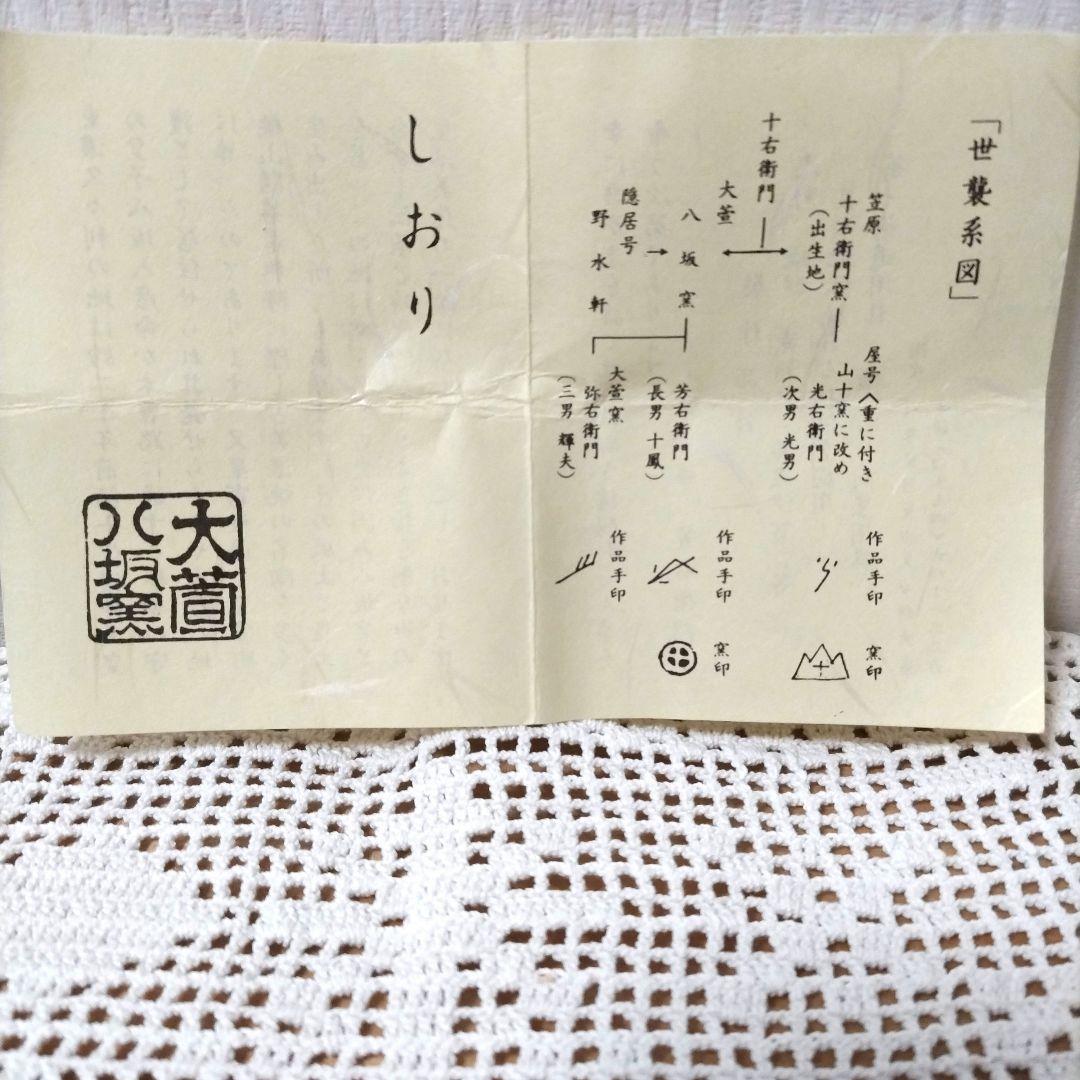 「世襲系図」
笠原
十右衛門窯
(出生地)
屋号く重に付き
山十窯に改め
光右衛門
(次男 光男)
作品手印
窯印
十右衛門
大萱
八坂窯
隠居号
野水軒
芳右衛門
(長男 十鳳)
作品手印
窯印
大萱窯
弥右衛門
(三男 輝夫)
作品手印
しおり
大萱
八坂窯